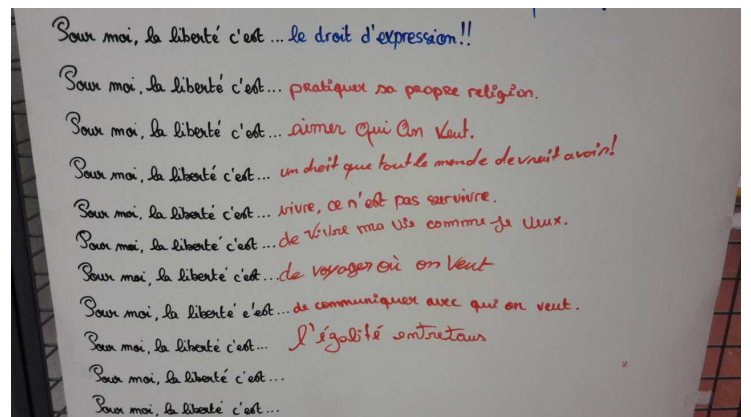 Pour moi, la liberté c'est... le droit d'expression!!
Pour moi, la liberté c'est... pratiquer sa propre religion.
Pour moi, la liberté c'est... aimer qui on veut.
Pour moi, la liberté c'est... un droit que tout le monde devrait avoir!
Pour moi, la liberté c'est... vivre, ce n'est pas survivre.
Pour moi, la liberté c'est... de vivre ma vie comme je veux.
Pour moi, la liberté c'est... de voyager où on veut
Pour moi, la liberté c'est... de communiquer avec qui on veut.
Pour moi, la liberté c'est... l'égalité entre tous
Pour moi, la liberté c'est...
Pour moi, la liberté c'est...